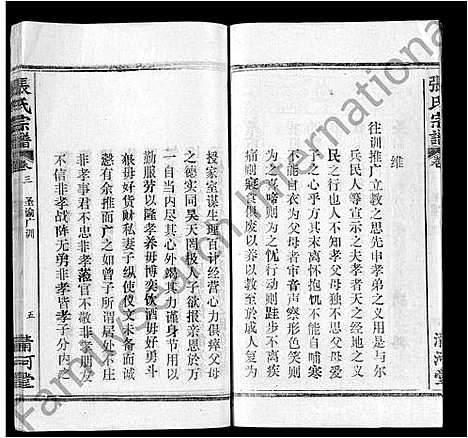 張氏宗譜
維
往訓推广立教之思先申孝弟之义用是与尔
兵民人等宣示之夫孝者天之经地之义
民之行也人不知孝父母独不思父母爱
子之心乎方其未离怀抱饥不能自哺寒
不能自衣为父母者审音声察形色笑则
为之喜啼则为之忧行动则跬步不离疾
痛则寝食俱废以养以教至於成人复为
清河堂
授家室谋生理百计经营心力俱瘁父母
之德实同昊天罔极人子欲报亲恩於万
一自当内尽其心外竭其力谨身节用以
勤服劳以隆孝养毋博奕饮酒毋好勇斗
狠毋好货财私妻子纵使仪文未备而诚
悫有余推而广之如曾子所谓居处不庄
非孝事君不忠非孝莅官不敬非孝朋友
不信非孝战阵无勇非孝皆孝子分内之
張氏宗譜
卷三
圣谕广训
五
清河堂
Family Saxton International